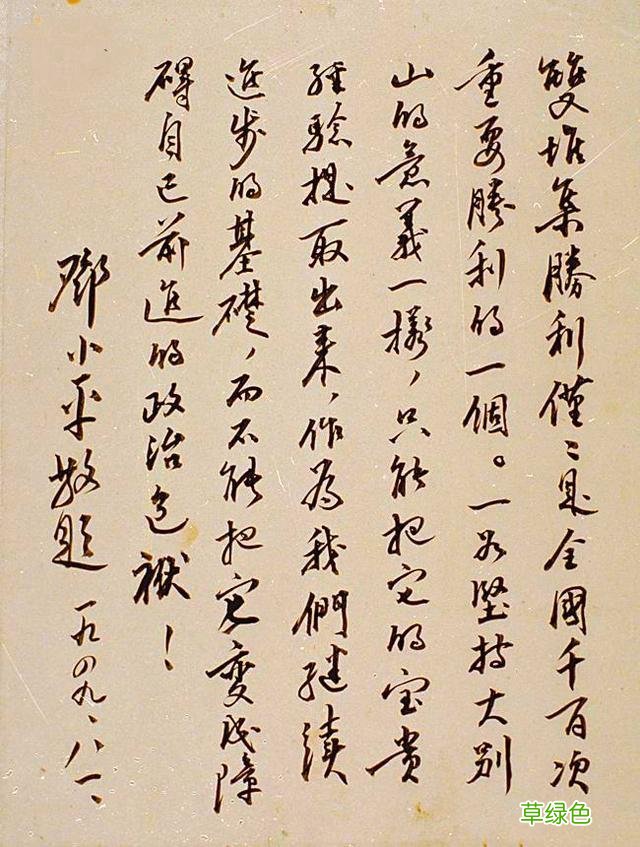 雙堆集勝利僅僅是全國千百次
重要勝利的一個。一如堅持大别
山的意義一樣，只能把它的宝贵
經驗提取出來，作為我們继續
進步的基礎，而不能把它變成障
碍自己前進的政治包袱！
鄧小平敬題 一九四九、八、一、
草绿色